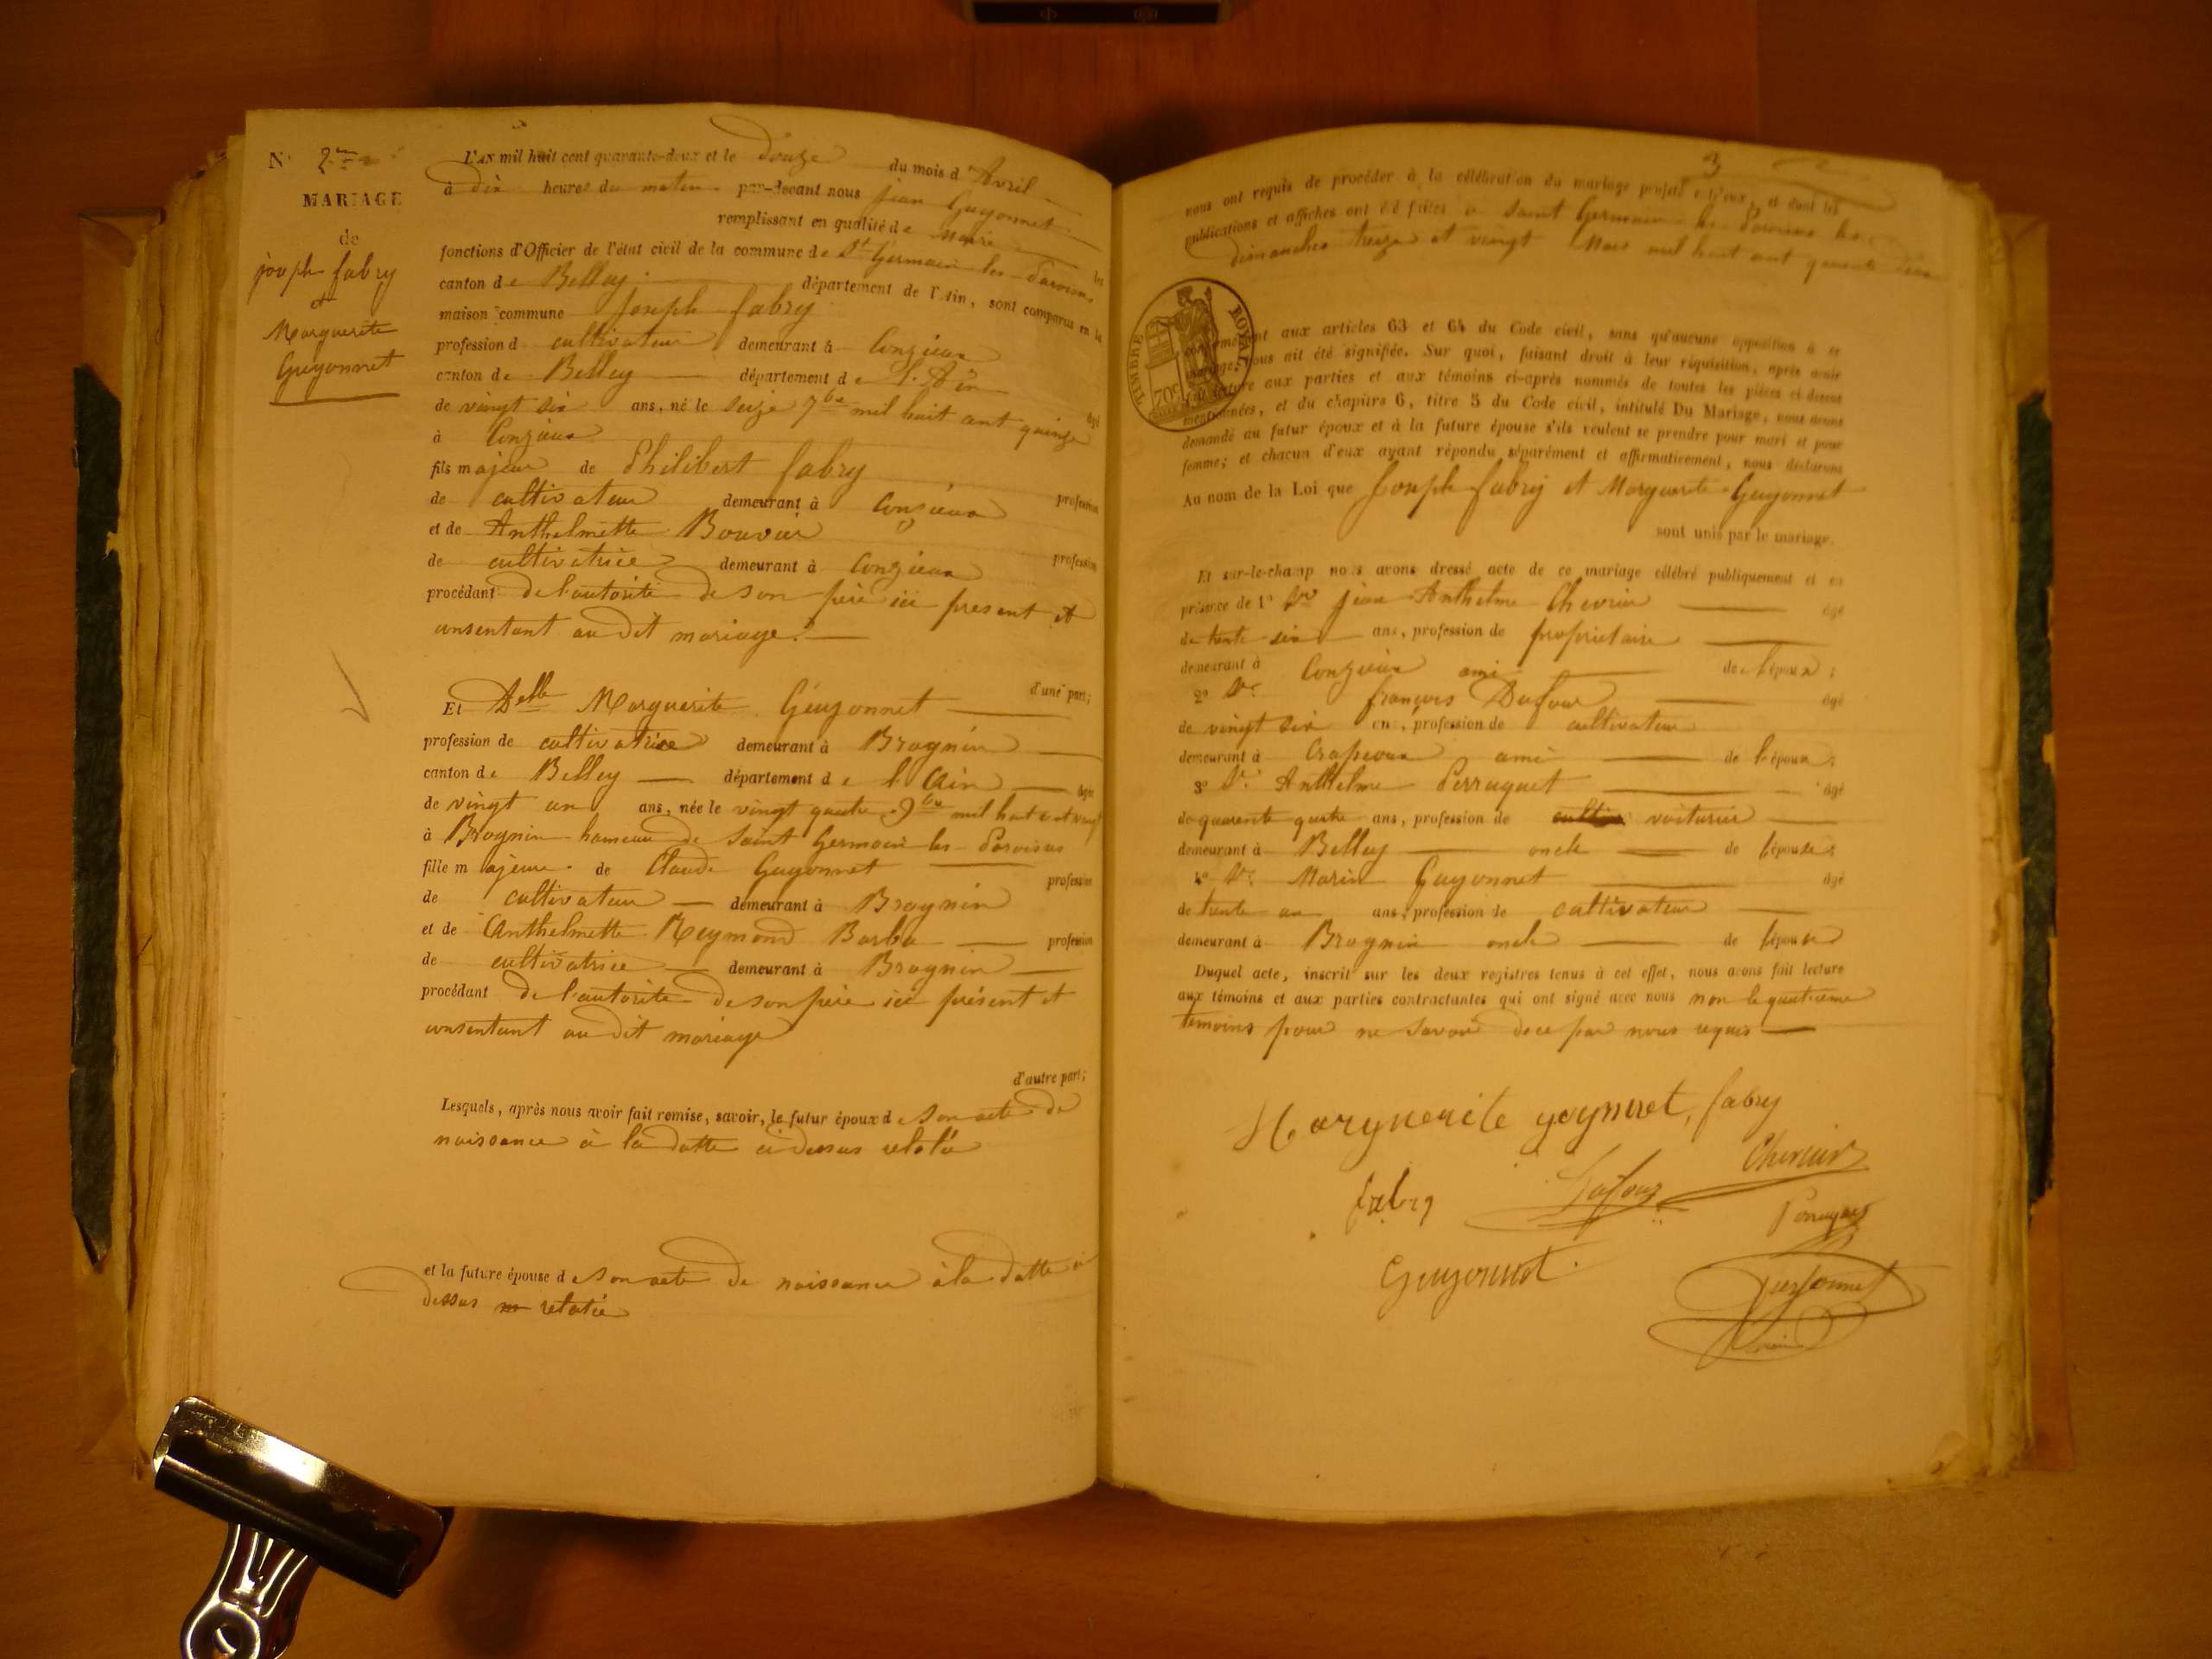 N° 2me
MARIAGE
de
joseph fabry
et
Marguerite
Guyonnet
L'AN mil huit cent quarante-deux et le Douze du mois d'Avril
à dix heures du matin par-devant nous jean Guyonnet
remplissant en qualité de Maire les
fonctions d'Officier de l'état civil de la commune de St Germain les Paroisses
canton de Belley département de l'Ain, sont comparus en la
maison commune Joseph fabry
profession d cultivateur demeurant à Conzieux
canton de Belley département de l'Ain âgé
de vingt six ans, né le seize 7bre mil huit cent quinze
à Conzieux
fils majeur de Philibert fabry profession
de cultivateur demeurant à Conzieux
et de Anthelmette Bouvier profession
de cultivatrice demeurant à Conzieux
procédant de l'autorité de son père ici présent et
consentant au dit mariage.
d'une part;
Et Delle Marguerite Guyonnet
profession de cultivatrice demeurant à Brognin
canton de Belley département de l'Ain âgée
de vingt un ans, née le vingt quatre 9bre mil huit cent vingt
à Brognin hameau de Saint Germain les Paroisses
fille majeure de Claude Guyonnet profession
de cultivateur demeurant à Brognin
et de Anthelmette Reymond Barbe profession
de cultivatrice demeurant à Brognin
procédant de l'autorité de son père ici présent et
consentant au dit mariage
d'autre part;
Lesquels, après nous avoir fait remise, savoir, le futur époux de son acte de
naissance à la datte ci dessus relaté
et la future épouse de son acte de naissance à la datte ci
dessus relatée
3
nous ont requis de procéder à la célébration du mariage projeté entr'eux, et dont les
publications et affiches ont été faites à Saint Germain les Paroisses les
dimanches treize et vingt Mars mil huit cent quarante deux
TIMBRE ROYAL
70c
conformément aux articles 63 et 64 du Code civil, sans qu'aucune opposition à ce
mariage nous ait été signifiée. Sur quoi, faisant droit à leur réquisition, après avoir
fait lecture aux parties et aux témoins ci-après nommés de toutes les pièces ci-dessus
mentionnées, et du chapitre 6, titre 5 du Code civil, intitulé Du Mariage, nous avons
demandé au futur époux et à la future épouse s'ils veulent se prendre pour mari et pour
femme; et chacun d'eux ayant répondu séparément et affirmativement, nous déclarons
Au nom de la Loi que Joseph fabry et Marguerite Guyonnet
sont unis par le mariage.
Et sur-le-champ nous avons dressé acte de ce mariage célébré publiquement et en
présence de 1° Sr jean Anthelme Chevrier âgé
de trente six ans, profession de propriétaire
demeurant à Conzieux ami de l'époux;
2° Sr françois Dufour âgé
de vingt six ans, profession de cultivateur
demeurant à Crapeoux ami de l'époux;
3° Sr Anthelme Perruquet âgé
de quarante quatre ans, profession de voiturier
demeurant à Belley oncle de l'épouse;
4° Sr Marin Guyonnet âgé
de trente un ans, profession de cultivateur
demeurant à Brognin oncle de l'épouse
Duquel acte, inscrit sur les deux registres tenus à cet effet, nous avons fait lecture
aux témoins et aux parties contractantes qui ont signé avec nous non le quatrième
témoins pour ne savoir de ce par nous requis
Marguerite goyneret, fabry
Chevrier
fabry Dufour
Perruquet
Guyonnet
Guyonnet
Maire